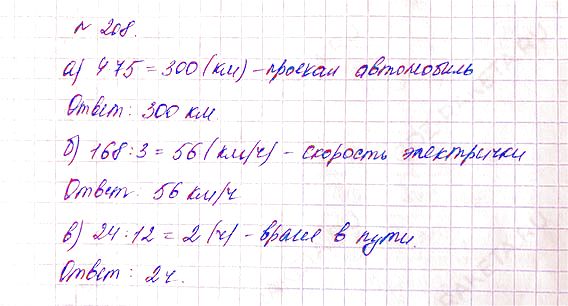 № 208.
а) 4 75 = 300 (км) – проехал автомобиль
Ответ: 300 км
б) 168 : 3 = 56 (км/ч) – скорость электрички
Ответ: 56 км/ч
в) 24 : 12 = 2 (ч) – время в пути.
Ответ: 2 ч.